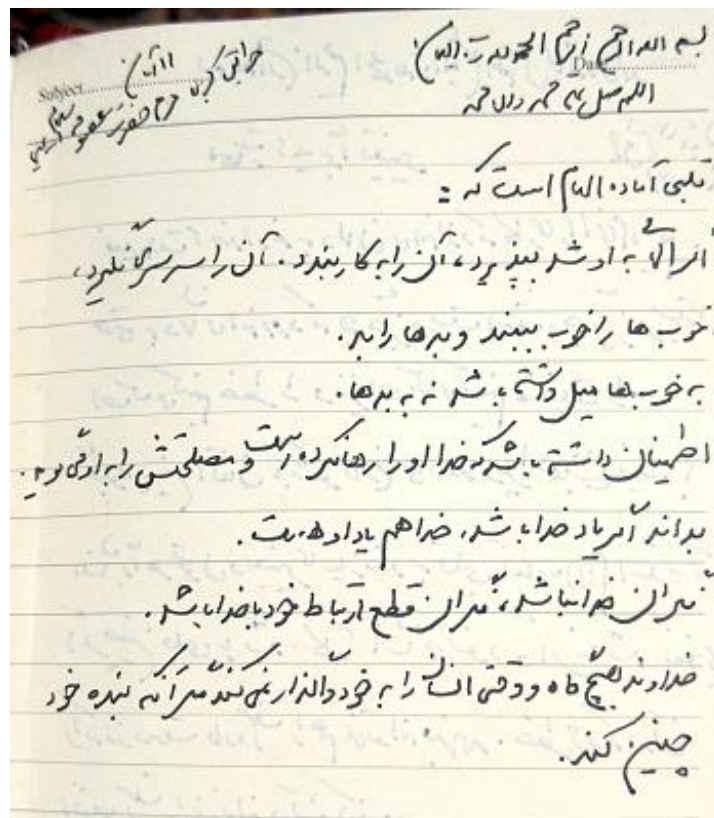 بسم الله الرحمن الرحیم الحمدلله رب العالمین
Date
Subject
اللهم صل علی محمد و آل محمد
حرم حضرت معصومه سلام الله علیها
قلبی آماده الهام است که :
اگر الهامی به او شد بپذیرد، آن را به کار بندد. آن را سرسری نگیرد،
خوب ها را خوب ببیند و بدها را بد.
به خوب ها میل داشته باشد نه به بدها.
اطمینان داشته باشد که خدا او را رها نکرده است و مصلحتش را به او می گوید.
بداند اگر یاد خدا باشد، خدا هم یاد او هست.
نگران خدا نباشد، نگران قطع ارتباط خود با خدا باشد.
خداوند هیچ گاه و وقتی انسان را به خود واگذار نمی کند مگر آنکه بنده خود
چنین کند.